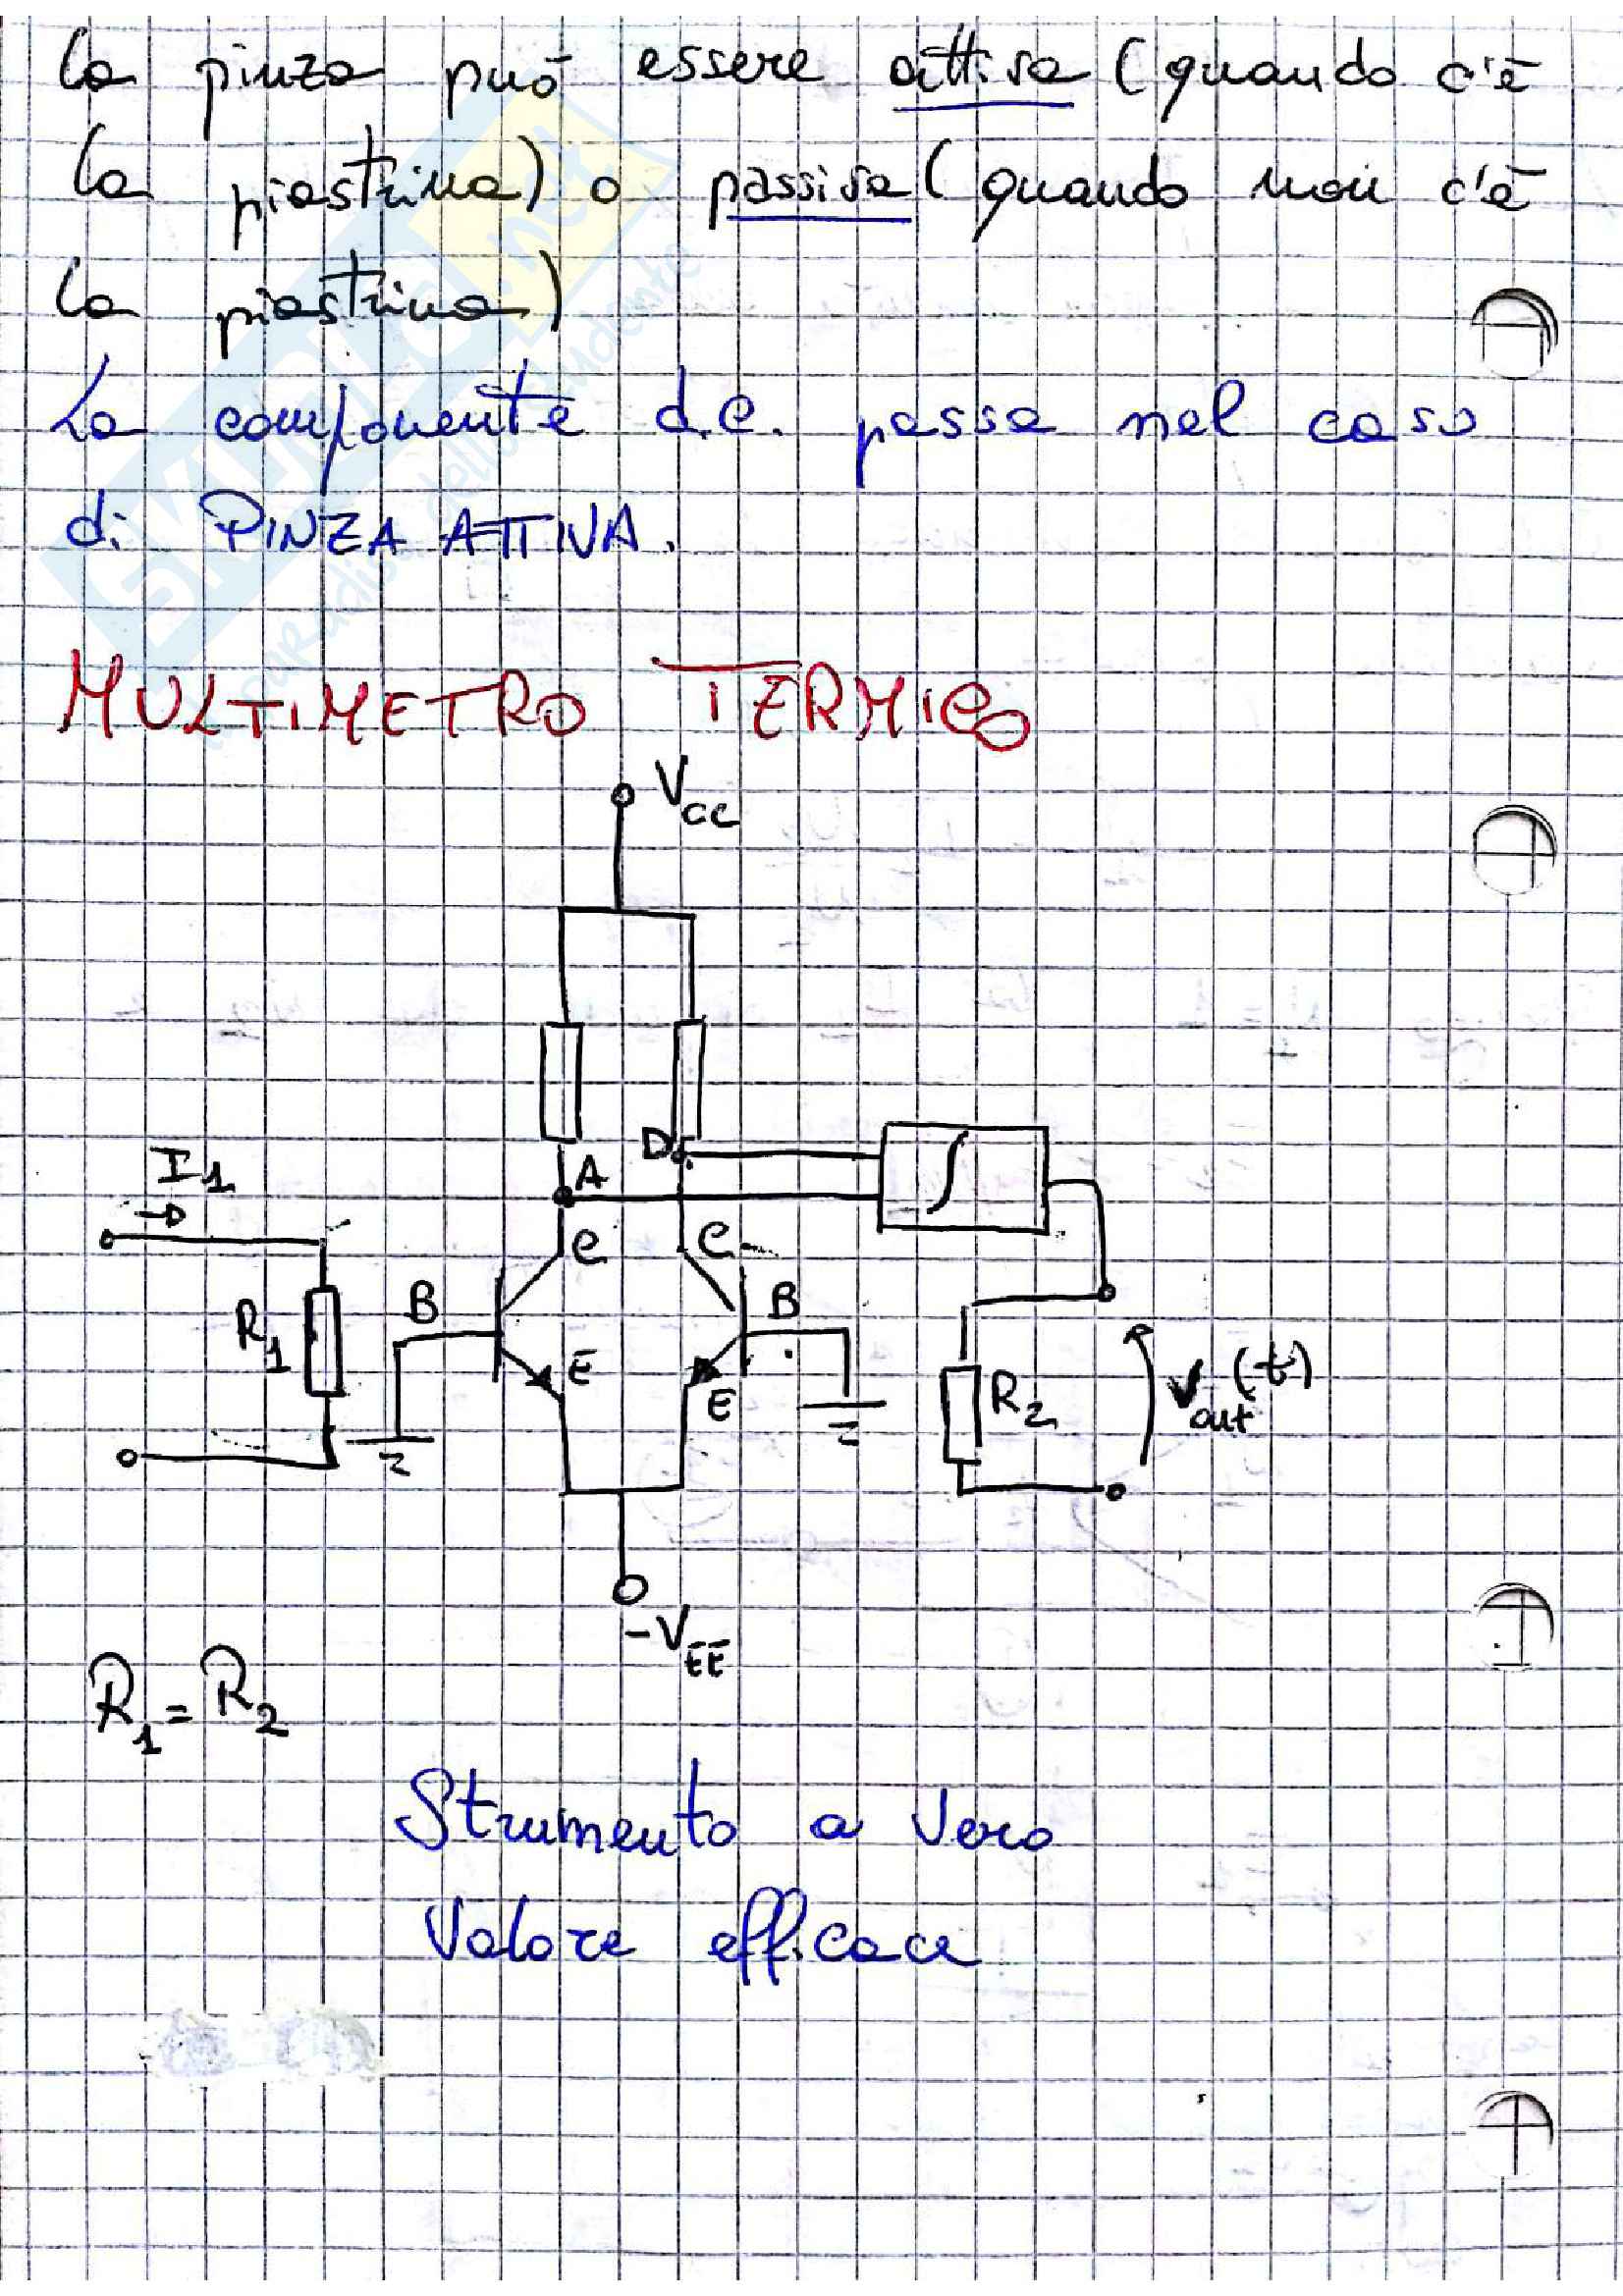 la pinza può essere attiva (quando c'è
la piastrina) o passiva (quando non c'è
la piastrina)
La componente d.c. passa nel caso
di PINZA ATTIVA.
MULTIMETRO TERMICO
Vcc
D
A
I1
C
C
B
B
R1
E
E
R2
Vout(t)
-VEE
R1 = R2
Strumento a Vero
Valore efficace
SKUOLA.net
paradiso dello studente